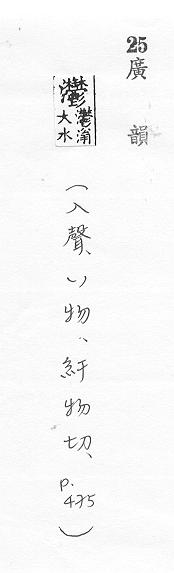 25 廣韻
灪
灪滃
大水
（入聲、八物、紆物切、p.475）